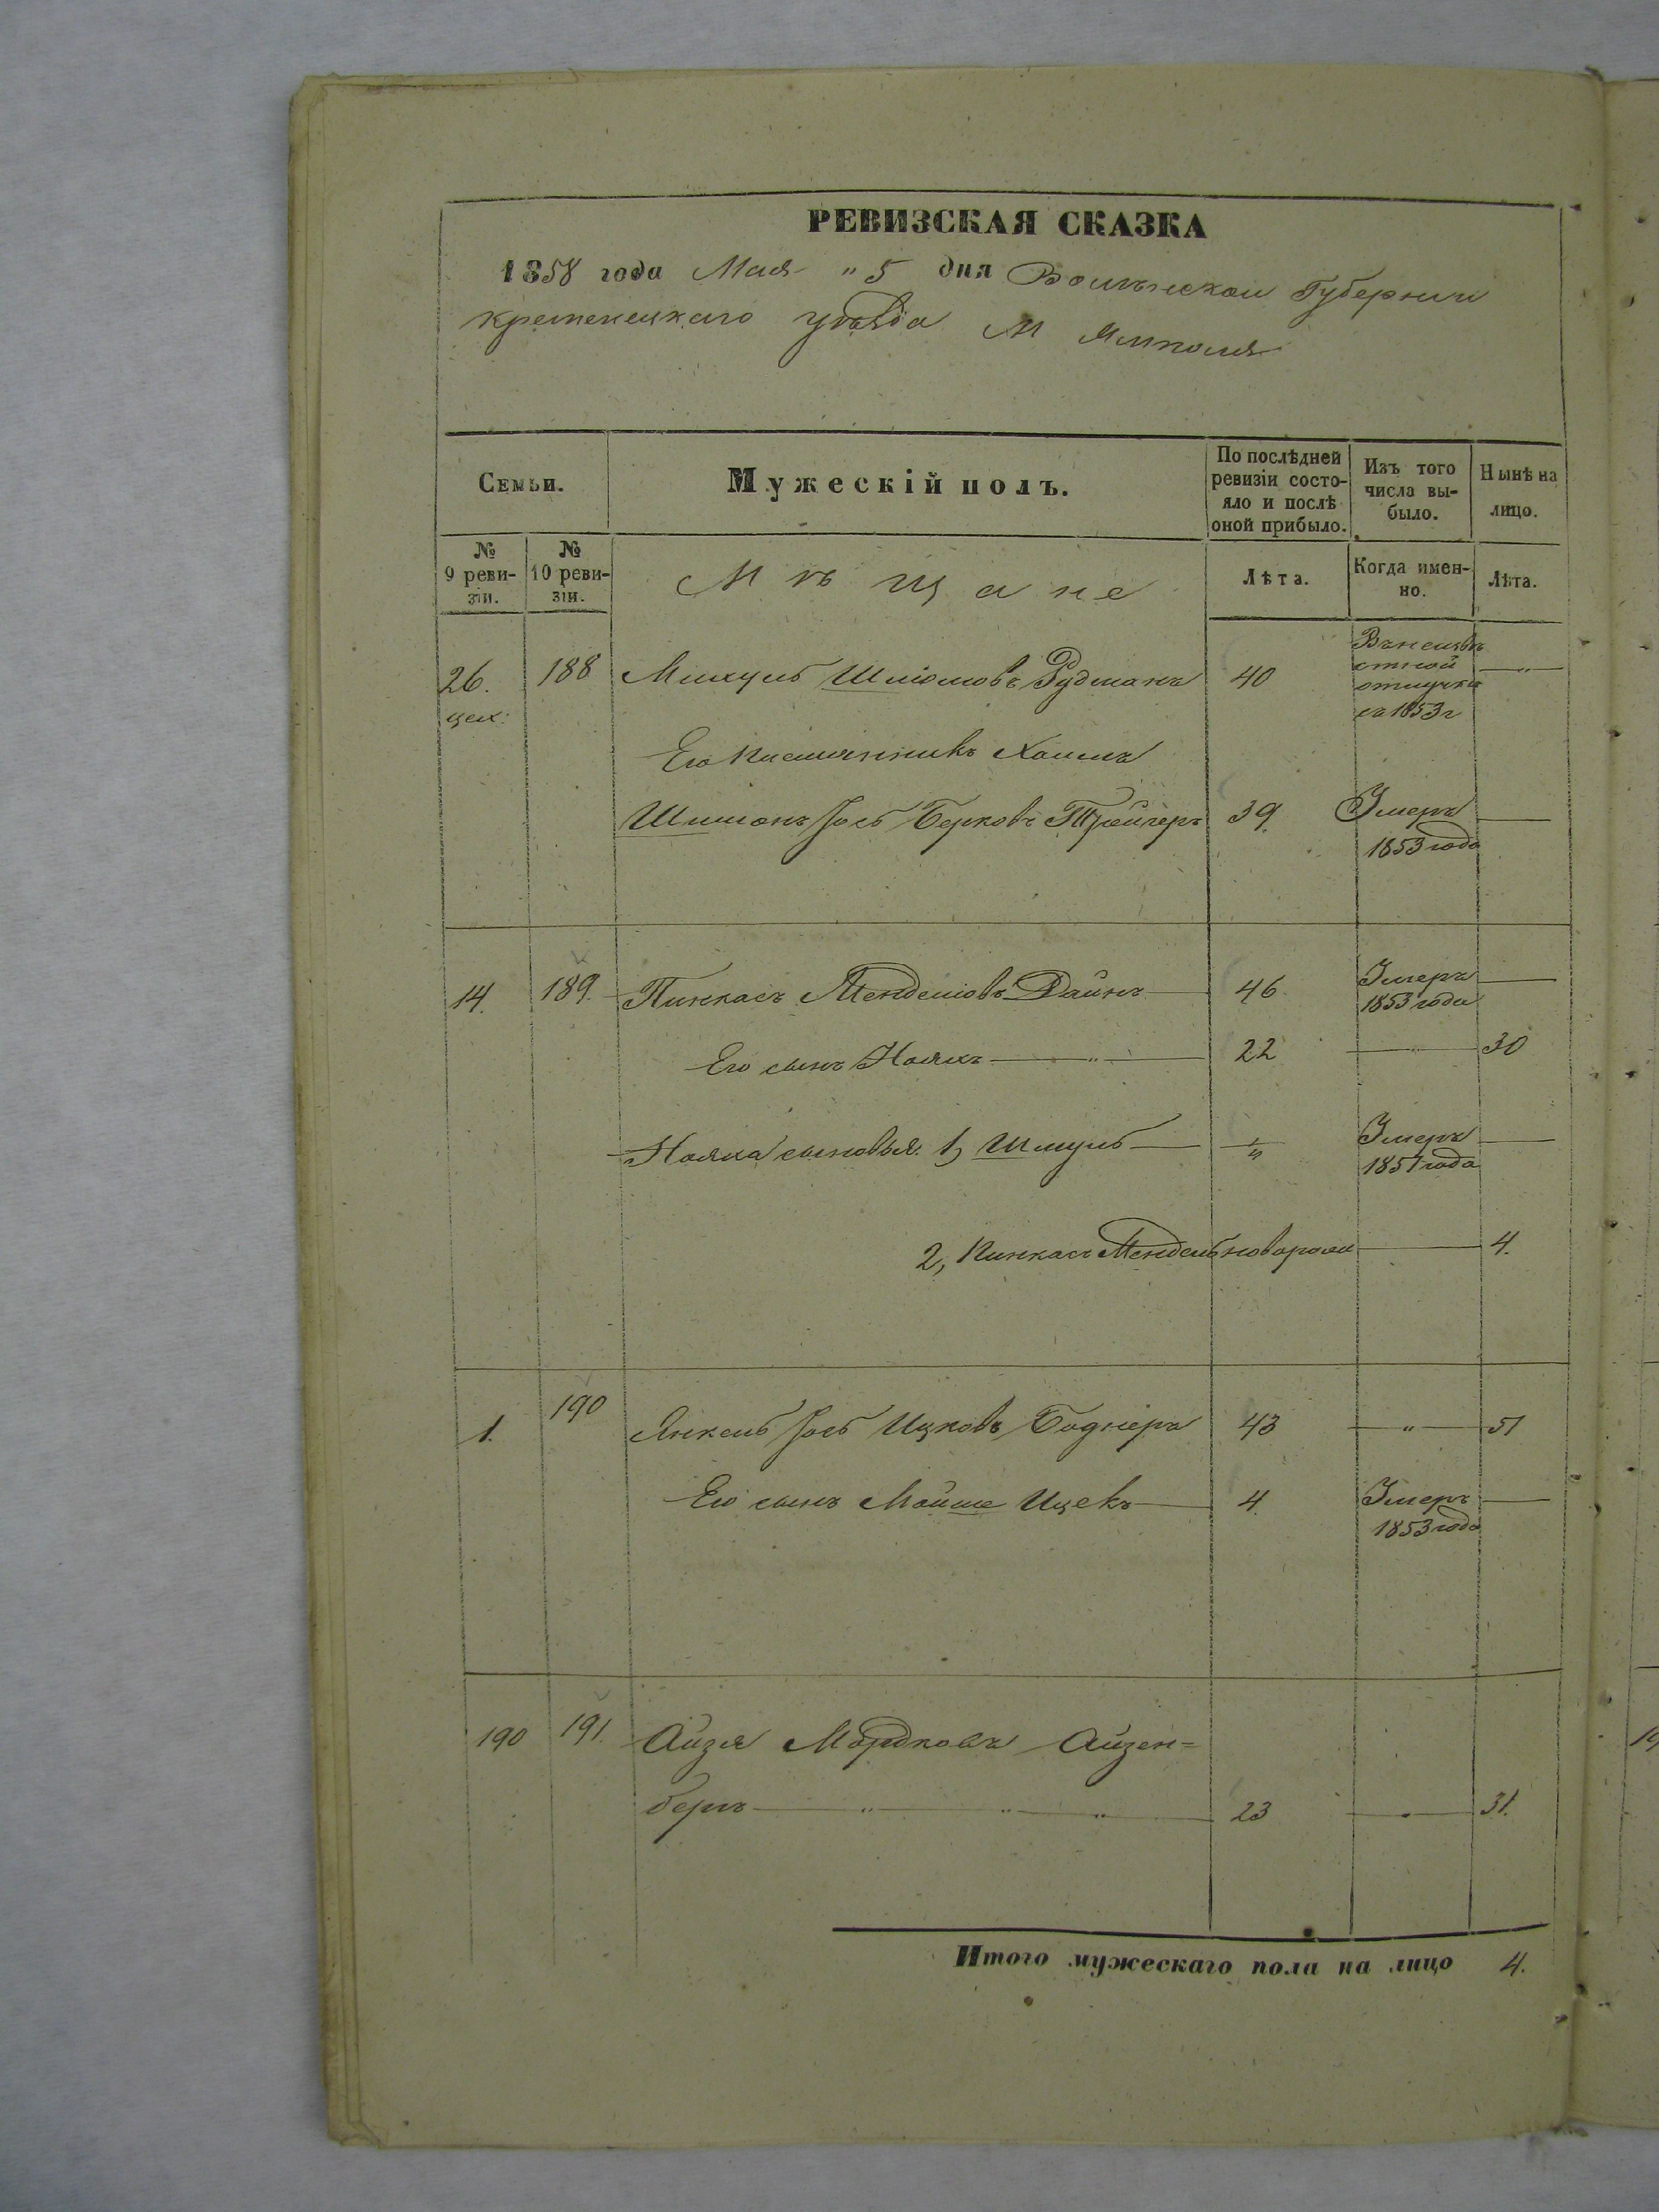 РЕВИЗСКАЯ СКАЗКА
1858 года Мая "5 дня Волынской Губернии
Кременецкаго уѣзда М Ямполя
Семьи.
Мужескій полъ.
По послѣдней ревизіи состо-
яло и послѣ оной прибыло.
Изъ того числа вы-
было.
Нынѣ на лицо.
№ 9 реви-
зіи.
№ 10 реви-
зіи.
Мѣщане
Лѣта.
Когда имен-
но.
Лѣта.
26. цех: 188 Михуль Шліомовъ Рудманъ 40 Въ неизвѣ
стной
отлучкѣ
съ 1853 г
Его племянникъ Хаимъ
Шимонъ Іось Берковъ Трейгеръ 39. Умеръ
1853 года
14. 189. Пинкасъ Менделіовъ Дайнъ 46 Умеръ
1853 года
Его сынъ Нояхъ " 22 " 30
Нояха сыновья. 1, Шмуль " Умеръ
1851 года
2, Пинкасъ Мендель новорож 4.
1. 190 Янкель Іось Ицковъ Боднеръ 43 " 51
Его сынъ Мойше Ицекъ 4. Умеръ
1853 года
190 191. Айзя Мордковъ Айзен=
бергъ " " " 23 " 31.
Итого мужескаго пола на лицо 4.